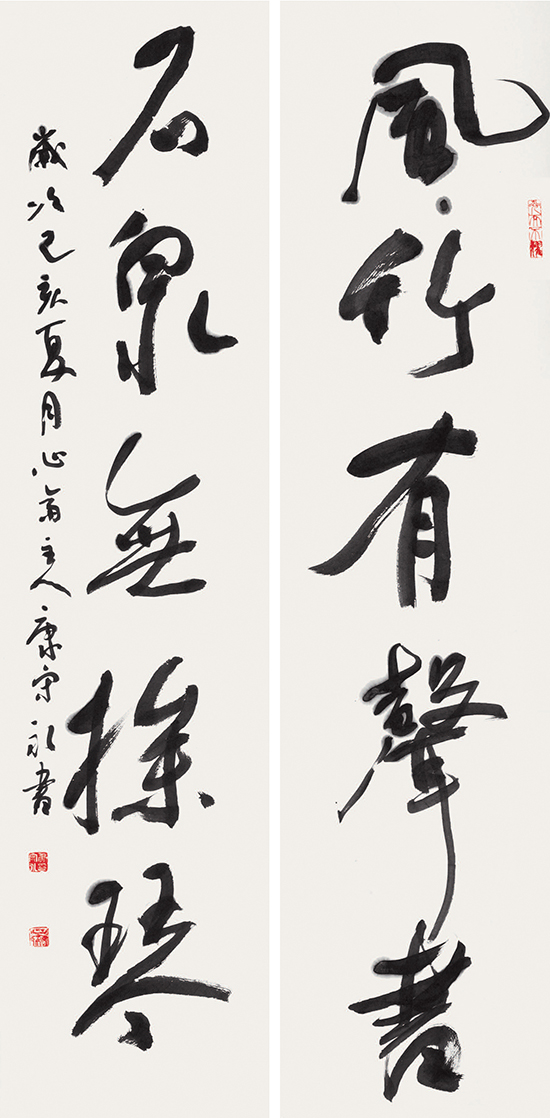 風竹有聲書
石泉無操琴
歲次己亥夏月心齋主人康守永書